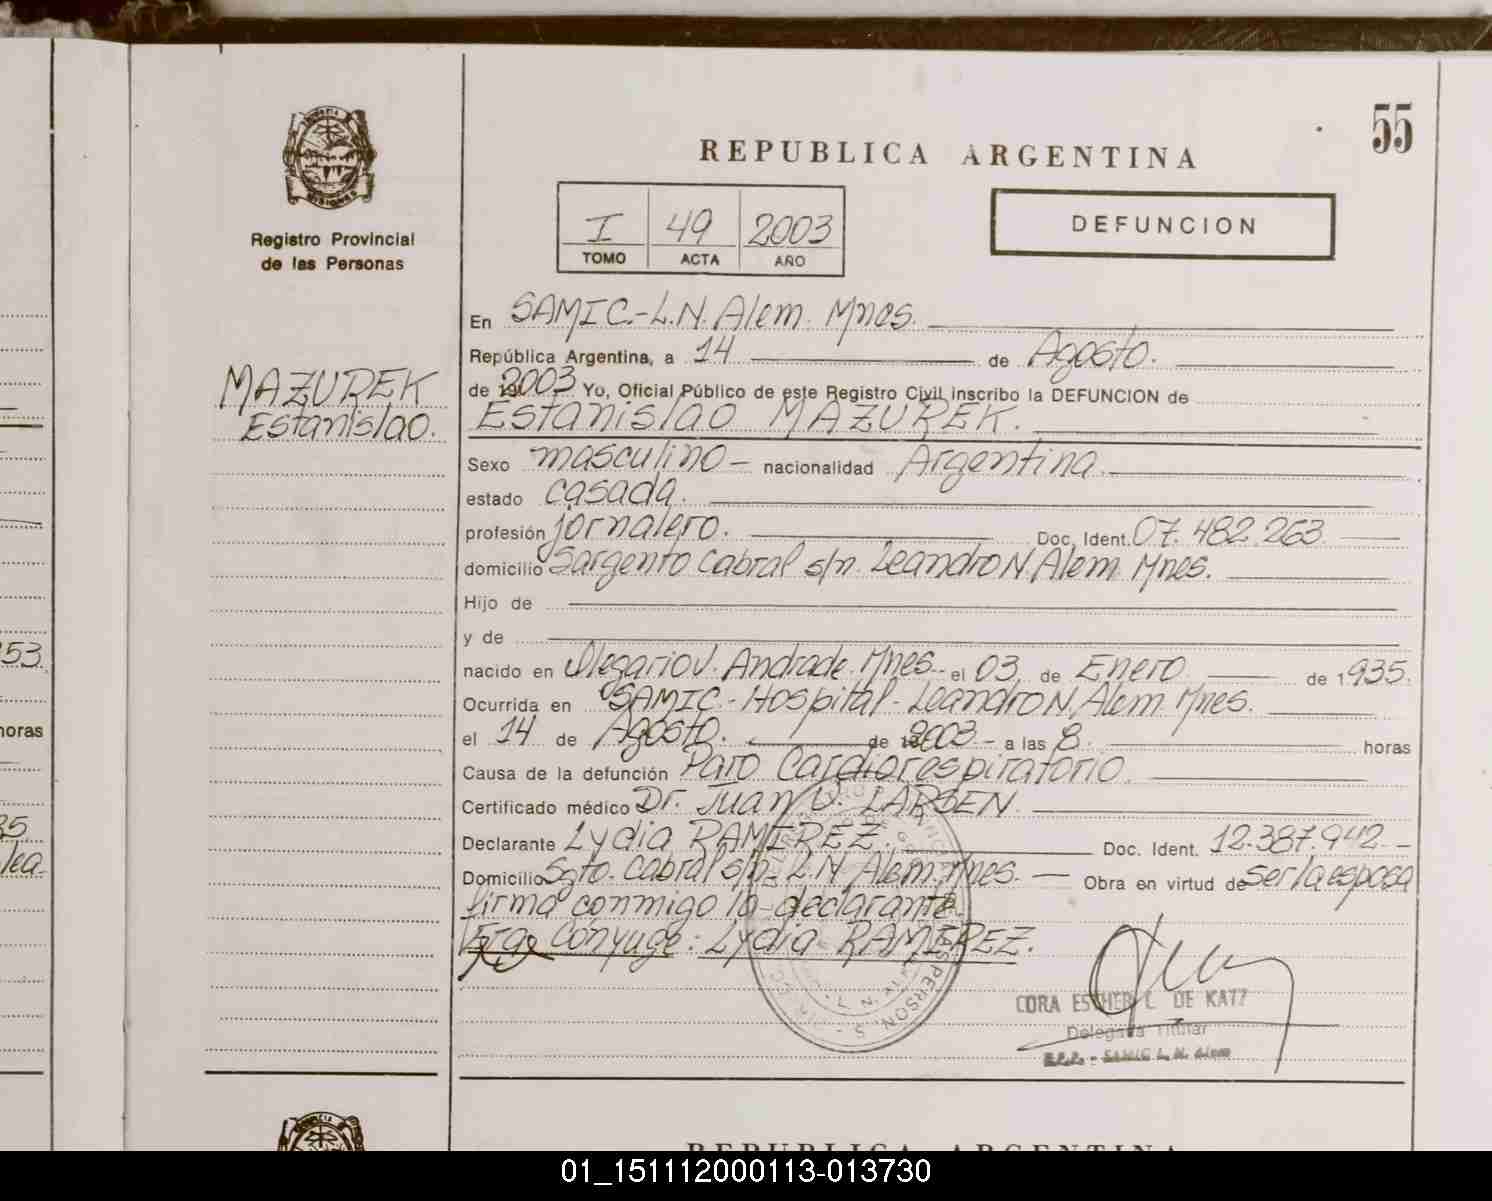 55
REPUBLICA ARGENTINA
MISIONES
Registro Provincial
de las Personas
I 49 2003
TOMO ACTA AÑO
DEFUNCION
MAZUREK
Estanislao.
En SAMIC.-L.N. Alem. Mnes.
República Argentina, a 14 de Agosto.
de 2003 Yo, Oficial Público de este Registro Civil inscribo la DEFUNCION de
Estanislao MAZUREK.
Sexo masculino - nacionalidad Argentina.
estado casada.
profesión jornalero. Doc. Ident. 07.482.263
domicilio Sargento Cabral s/n. Leandro N. Alem Mnes.
Hijo de
y de
nacido en Olegario V. Andrade. Mnes. el 03 de Enero de 1935.
Ocurrida en SAMIC.-Hospital-Leandro N. Alem. Mnes.
el 14 de Agosto. de 2003 - a las 8. horas
Causa de la defunción Paro Cardiorespiratorio.
Certificado médico Dr. Juan V. LARSEN.
Declarante Lydia RAMIREZ. Doc. Ident. 12.387.942.-
Domicilio Sgto. Cabral s/n. L.N Alem. Mnes. - Obra en virtud de ser la esposa
firma conmigo la declarante.
Cónyuge: Lydia RAMIREZ.
CORA ESTHER L. DE KATZ
Delegada Titular
R.P.P. - SAMIC L. N. Alem
53.
horas
35.
lea.
REPUBLICA ARGENTINA
01_151112000113-013730